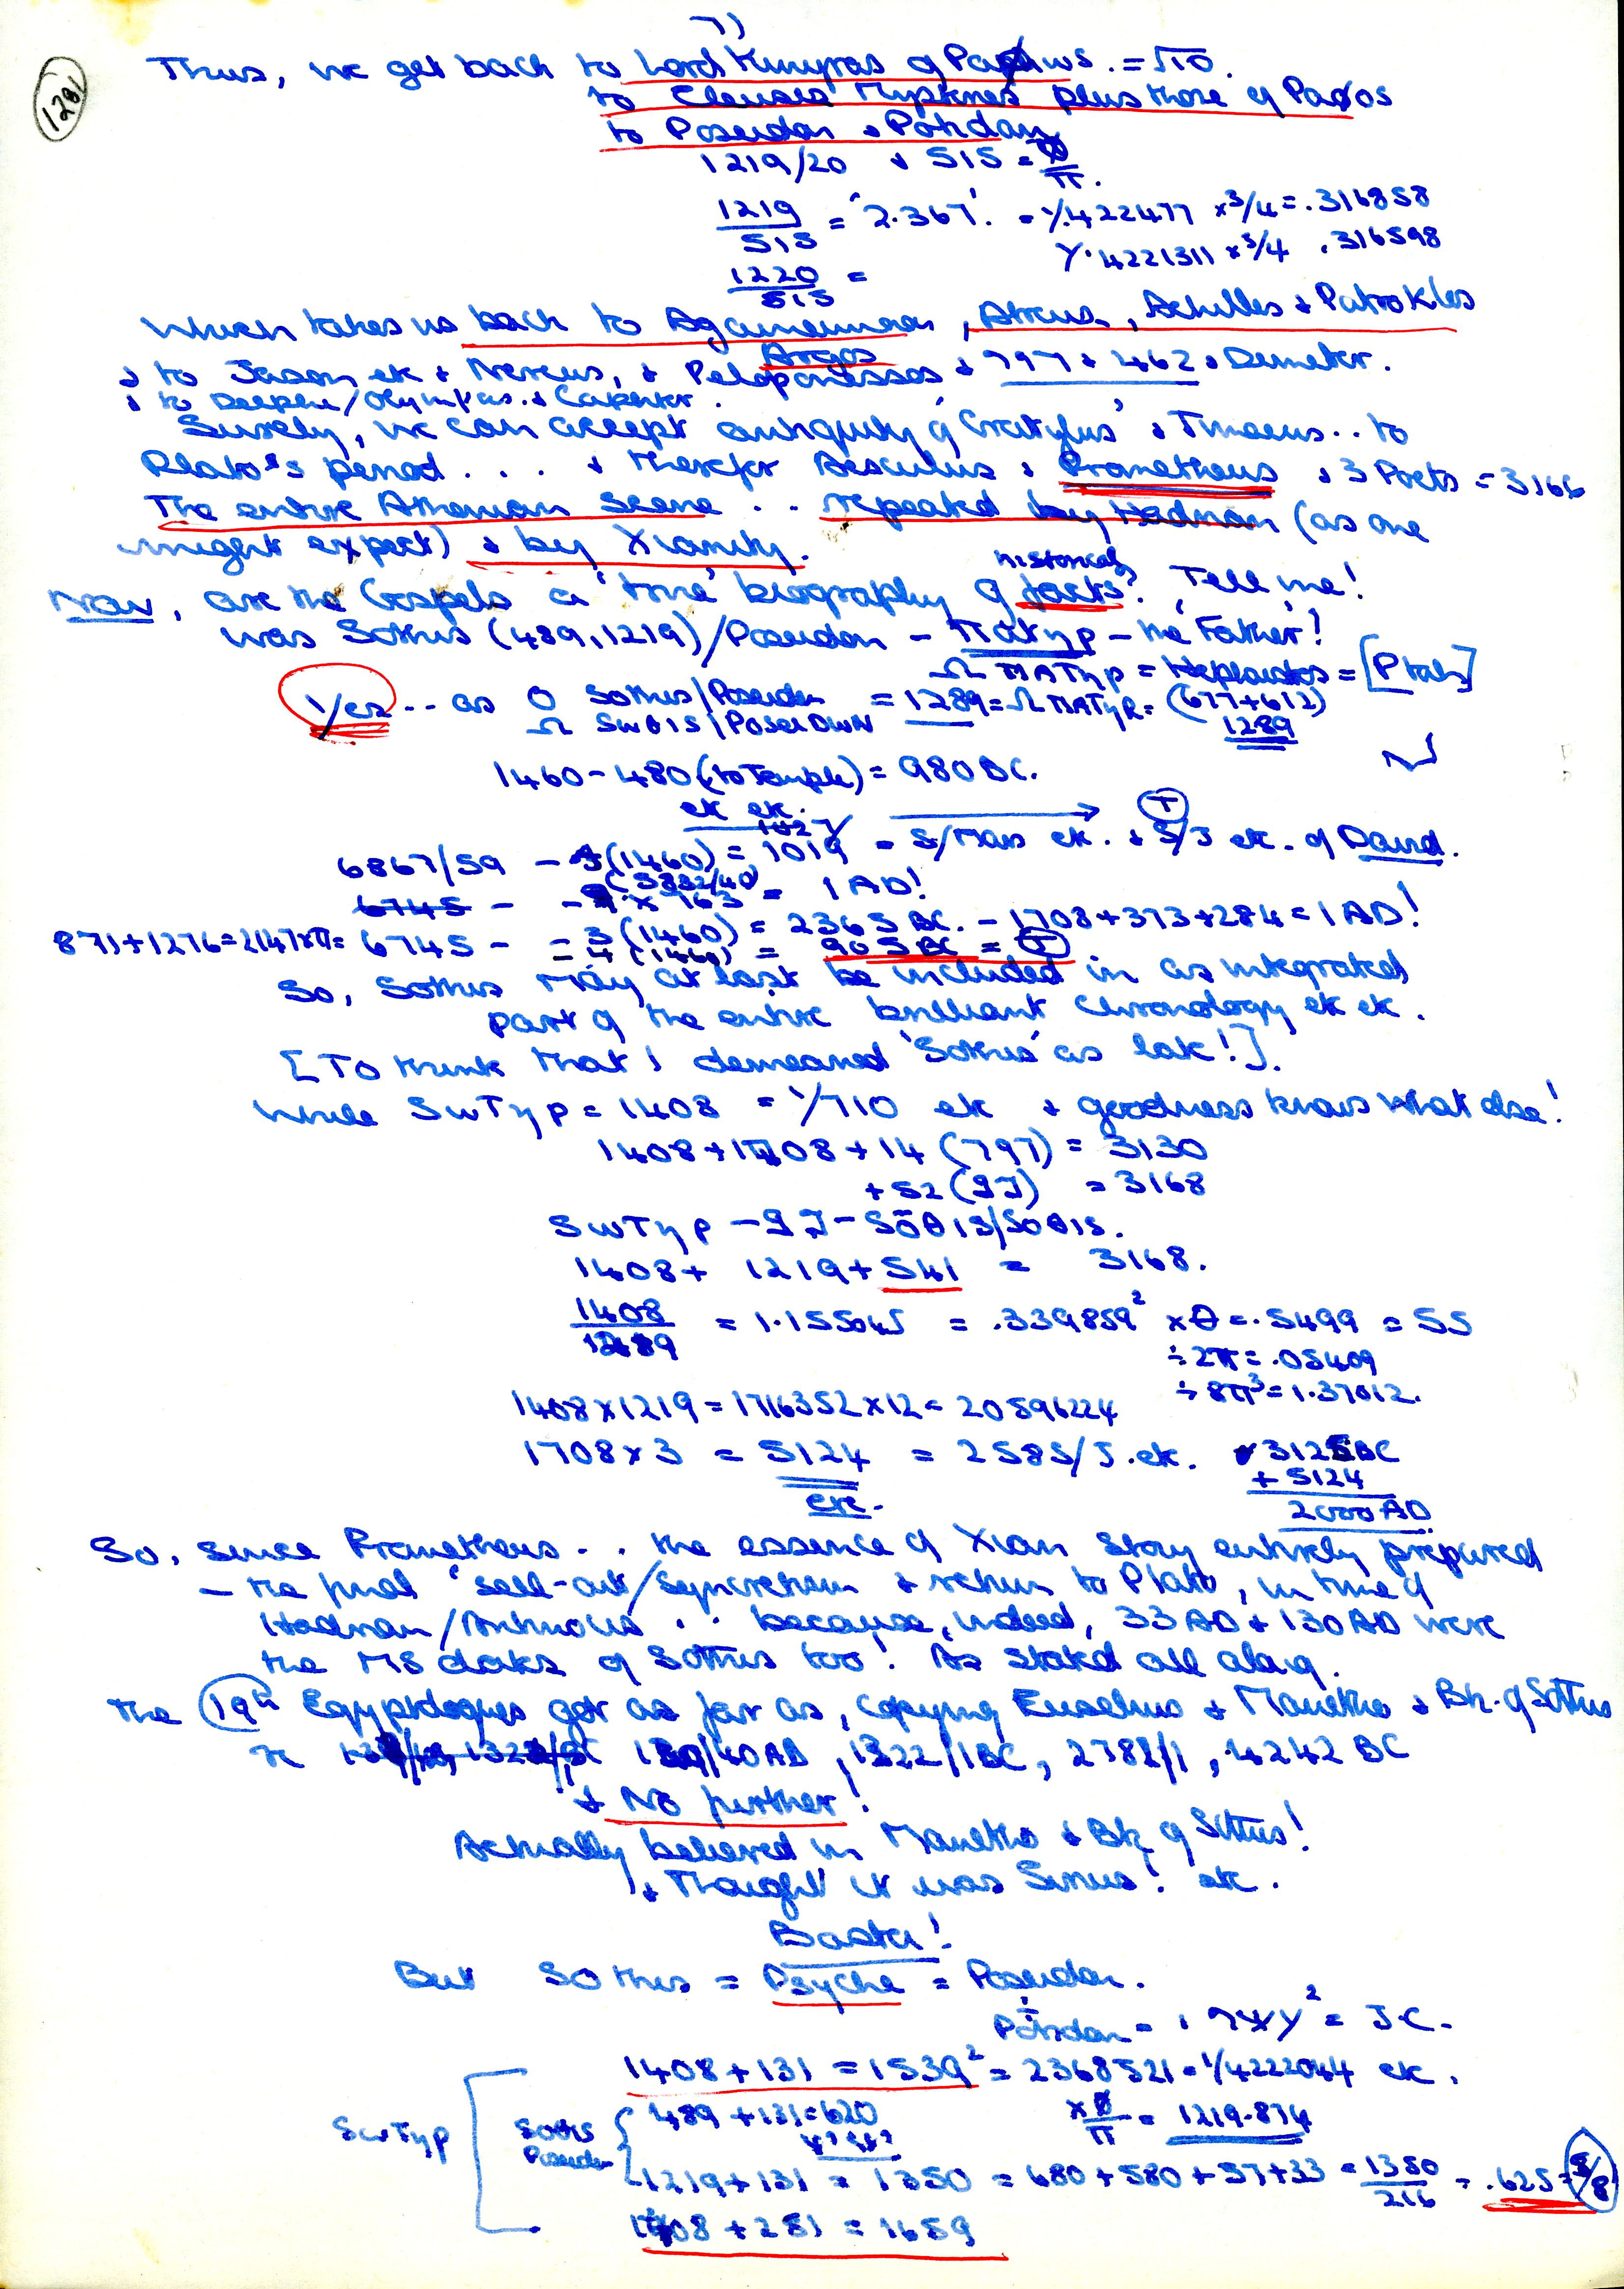 7)
1281
Thus, we get back to Lord Kinyras of Paphos. = √10.
to Clauses plus those of Pafos
to Poseidon + Potidan
1219/20 + 515 = Ø/π.
1219/515 = '2.367'. = 1/.422477 x 3/4 = .316858
1220/515 = 1/.4221311 x 3/4 .316598
Which takes us back to Agamemnon, Atreus, Achilles + Patrokles
+ to Jason etc + Nereus, + Argos Peloponessos + 797 + 462 + Demeter.
+ to Delphi/Olympus. +
Surely, we can accept antiquity of 'Cratylus' + Timaeus.. to
Plato's period... + therefor + Prometheus + 3 Poets = 3166
The entire Athenian Scene .. repeated by Hadrian (as one
might expect) + by Xianity.
Now, are the Gospels a 'true' biography of historical facts? Tell me!
Was Sothis (489,1219)/Poseidon - Πατηρ - the Father?
Ω ΠΑΤηρ = Hephaistos = [Ptah]
Yes .. as O Sothis/Poseidon = 1289 = Ω ΠΑΤηR = (677+612)
Ω SωθIS/POSEIDωN 1289
1460 - 480 (to Temple) = 980 BC.
etc etc.
6867/59 - 4(1460) = 1019 = S/Mars etc. + S/J etc. of David.
(3832/40)
6745 - x 163 = 1 AD!
871+1276=2147xπ= 6745 - = 3(1460) = 2365 BC. - 1708+373+284 = 1 AD!
= 4(1460) = 905 BC =
So, Sothis may at last be included in as integrated
part of the entire brilliant Chronology etc etc.
[To think that I demeaned 'Sothis' as late!].
While SωTηρ = 1408 = 1/710 etc + goodness knows what else!
1408+1708+14 (797) = 3130
+52 (9J) = 3168
SωTηρ - 9J - SōθIS/SOθIS.
1408+ 1219+541 = 3168.
1408/1219 = 1.155045 = .339859² x θ = .5499 = 55
÷ 2π = .05409
÷ 8π³ = 1.37012.
1408x1219 = 1716352x12 = 20596224
1708x3 = 5124 = 2585/J. etc. 3125BC
+ 5124
etc. 2000 AD
So, since Prometheus.. the essence of Xian Story entirely prepared
- the final 'sell-out/Syncretism + return to Plato, in time of
Hadrian/Antinous .. because, indeed, 33 AD + 130 AD were
the MS dates of Sothis too! As stated all along.
The 19th Egyptologues got as far as, copying Eusebius + Manetho + Bk. of Sothis
139/40AD, 1322/1BC, 2782/1, 4242 BC
+ No further!
Actually believed in Manetho + Bk of Sothis!
+ Thought it was Sirius! etc.
Basta!
But Sothis = Psyche = Poseidon.
÷
Potidan = J.C.
1408+131 = 1539² = 2368521 = 1/4222044 etc.
SωTηρ Sothis 489+131=620 x Ø/π = 1219.874
Poseidon 1219+131 = 1350 = 680+580+57+33 = 1350/216 = .625 = 5/8
1408 + 251 = 1659